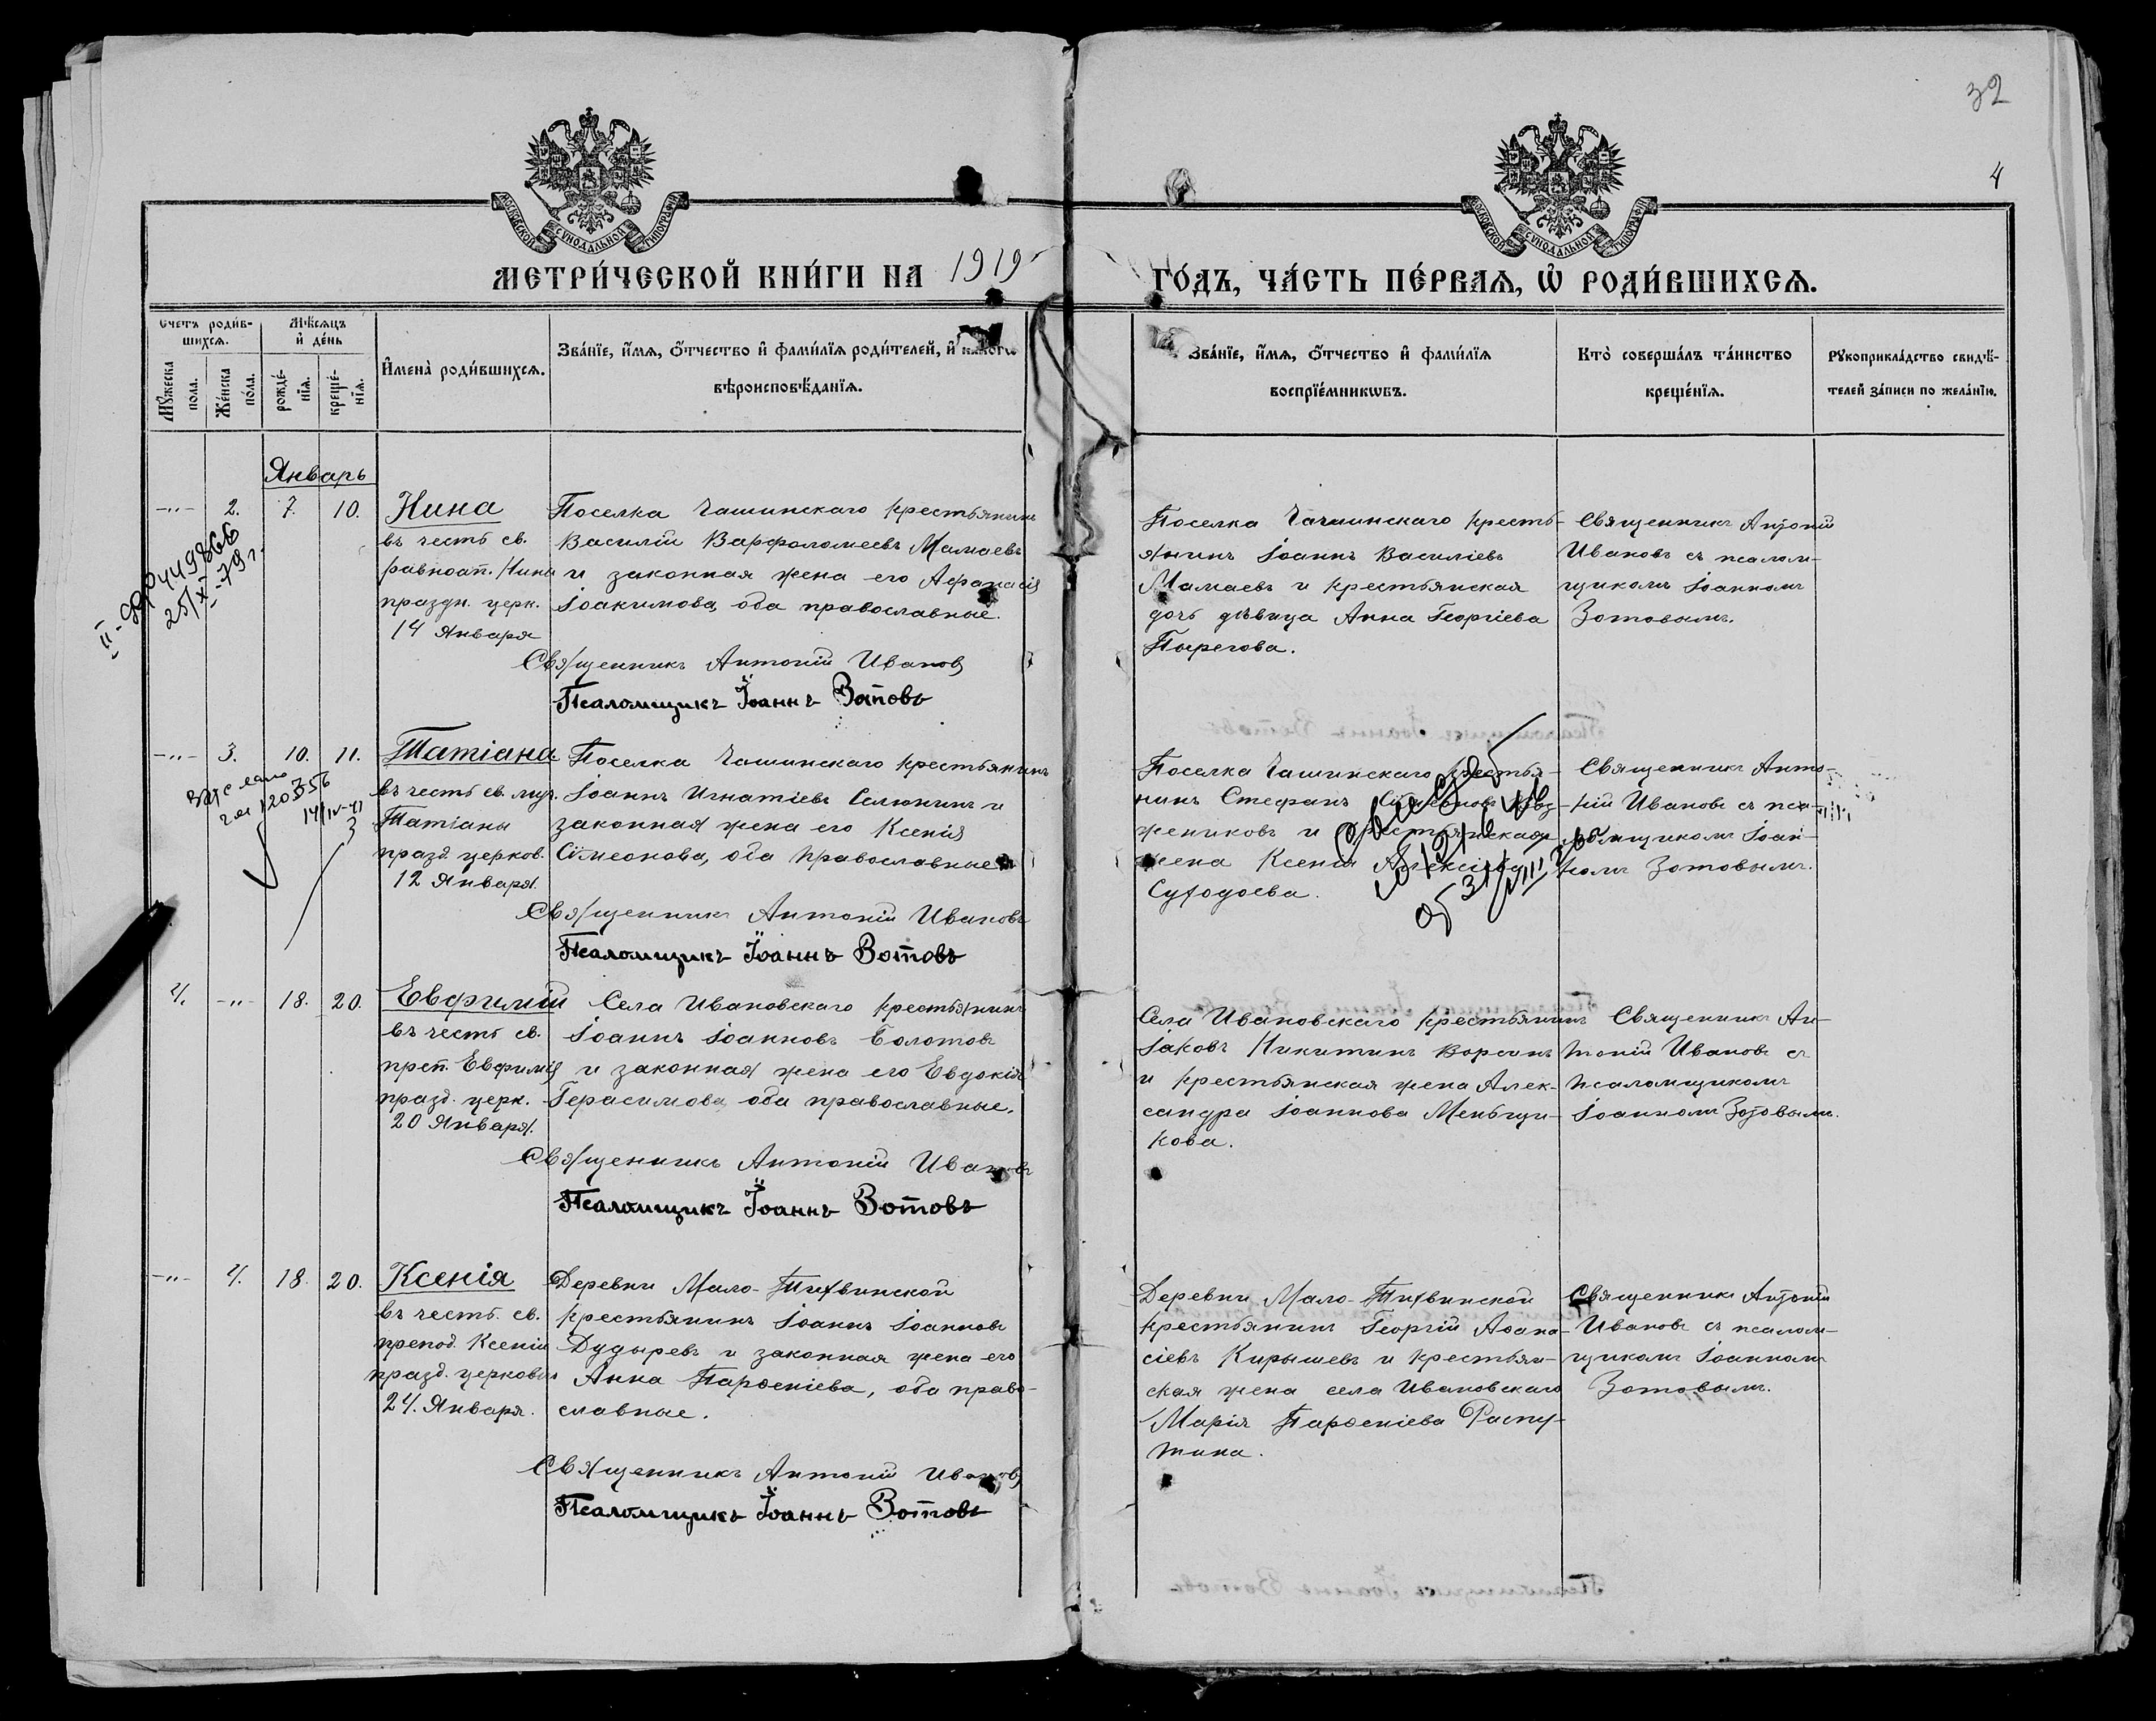 32
4
МОСКОВСКОЙ СѴНОДАЛЬНОЙ ТИПОГРАФІИ
МОСКОВСКОЙ СѴНОДАЛЬНОЙ ТИПОГРАФІИ
МЕТРИ́ЧЕСКОЙ КНИ́ГИ НА 1919 ГО́ДЪ, ЧА́СТЬ ПЕ́РВАѦ, Ѡ҆ РОДИ́ВШИХСѦ.
Счетъ роди́в-
шихсѧ.
Мꙋ́жеска
пола.
Же́нска
пола.
Мѣ́сѧцъ
и҆ де́нь
рожде́-
нїѧ.
креще́-
нїѧ.
И҆мена̀ роди́вшихсѧ.
Зва́нїе, и҆́мѧ, ѻ҆́тчество и҆ фами́лїѧ роди́телей, и҆
вѣроисповѣ́данїѧ.
Зва́нїе, и҆́мѧ, ѻ҆́тчество и҆ фами́лїѧ
воспрїе́мникѡвъ.
Кто̀ соверша́лъ та́инство
креще́нїѧ.
Рꙋкоприкла́дство свидѣ́-
телей за́писи по жела́нїю.
Январь
-"- 2. 7. 10.
Нина
въ честь св.
равноап. Нины
праздн. церк.
14 Января
Поселка Чашинскаго крестьянинъ
Василій Варфоломеевъ Мамаевъ
и законная жена его Афанасія
Іоакимова, оба православные.
Священникъ Антоній Ивановъ
Псаломщикъ Іоаннъ Зотовъ
Поселка Чашинскаго кресть-
янинъ Іоаннъ Василіевъ
Мамаевъ и крестьянская
дочь дѣвица Анна Георгіева
Пырегова.
Священникъ Антоній
Ивановъ съ псалом-
щикомъ Іоанномъ
Зотовымъ.
449866
25/X-79 г.
-"- 3. 10. 11.
Татіана
въ честь св. муч.
Татіаны
празд. церков.
12 Января.
Поселка Чашинскаго крестьянинъ
Іоаннъ Игнатіевъ Селюнинъ и
законная жена его Ксенія
Сімеонова, оба православные
Священникъ Антоній Ивановъ
Псаломщикъ Іоаннъ Зотовъ
Поселка Чашинскаго крестья-
нинъ Стефанъ
жениковъ и крестьянская
жена Ксенія Алексіева
Суходоева.
Священникъ Анто-
ній Ивановъ съ пса-
ломщикомъ Іоан-
номъ Зотовымъ.
4. -"- 18. 20.
Евфимій
въ честь св.
преп. Евфимія
празд. церк.
20 Января.
Села Ивановскаго крестьянинъ
Іоаннъ Іоанновъ Болотовъ
и законная жена его Евдокія
Герасимова оба православные.
Священникъ Антоній Ивановъ
Псаломщикъ Іоаннъ Зотовъ
Села Ивановскаго крестьянинъ
Іаковъ Никитинъ Ворсинъ
и крестьянская жена Алек-
сандра Іоаннова Меньщи-
кова.
Священникъ Ан-
тоній Ивановъ съ
псаломщикомъ
Іоанномъ Зотовымъ.
-"- 4. 18. 20.
Ксенія
въ честь св.
препод. Ксеніи
празд. церковію
24. Января.
Деревни Мало-Тихвинской
крестьянинъ Іоаннъ Іоанновъ
Дудыревъ и законная жена его
Анна Парѳеніева, оба право-
славные.
Священникъ Антоній Ивановъ
Псаломщикъ Іоаннъ Зотовъ
Деревни Мало-Тихвинской
крестьянинъ Георгій Аѳана-
сіевъ Кирышевъ и крестьян-
ская жена села Ивановскаго
Марія Парѳеніева Распу-
тина.
Священникъ Антоній
Ивановъ съ псалом-
щикомъ Іоанномъ
Зотовымъ.